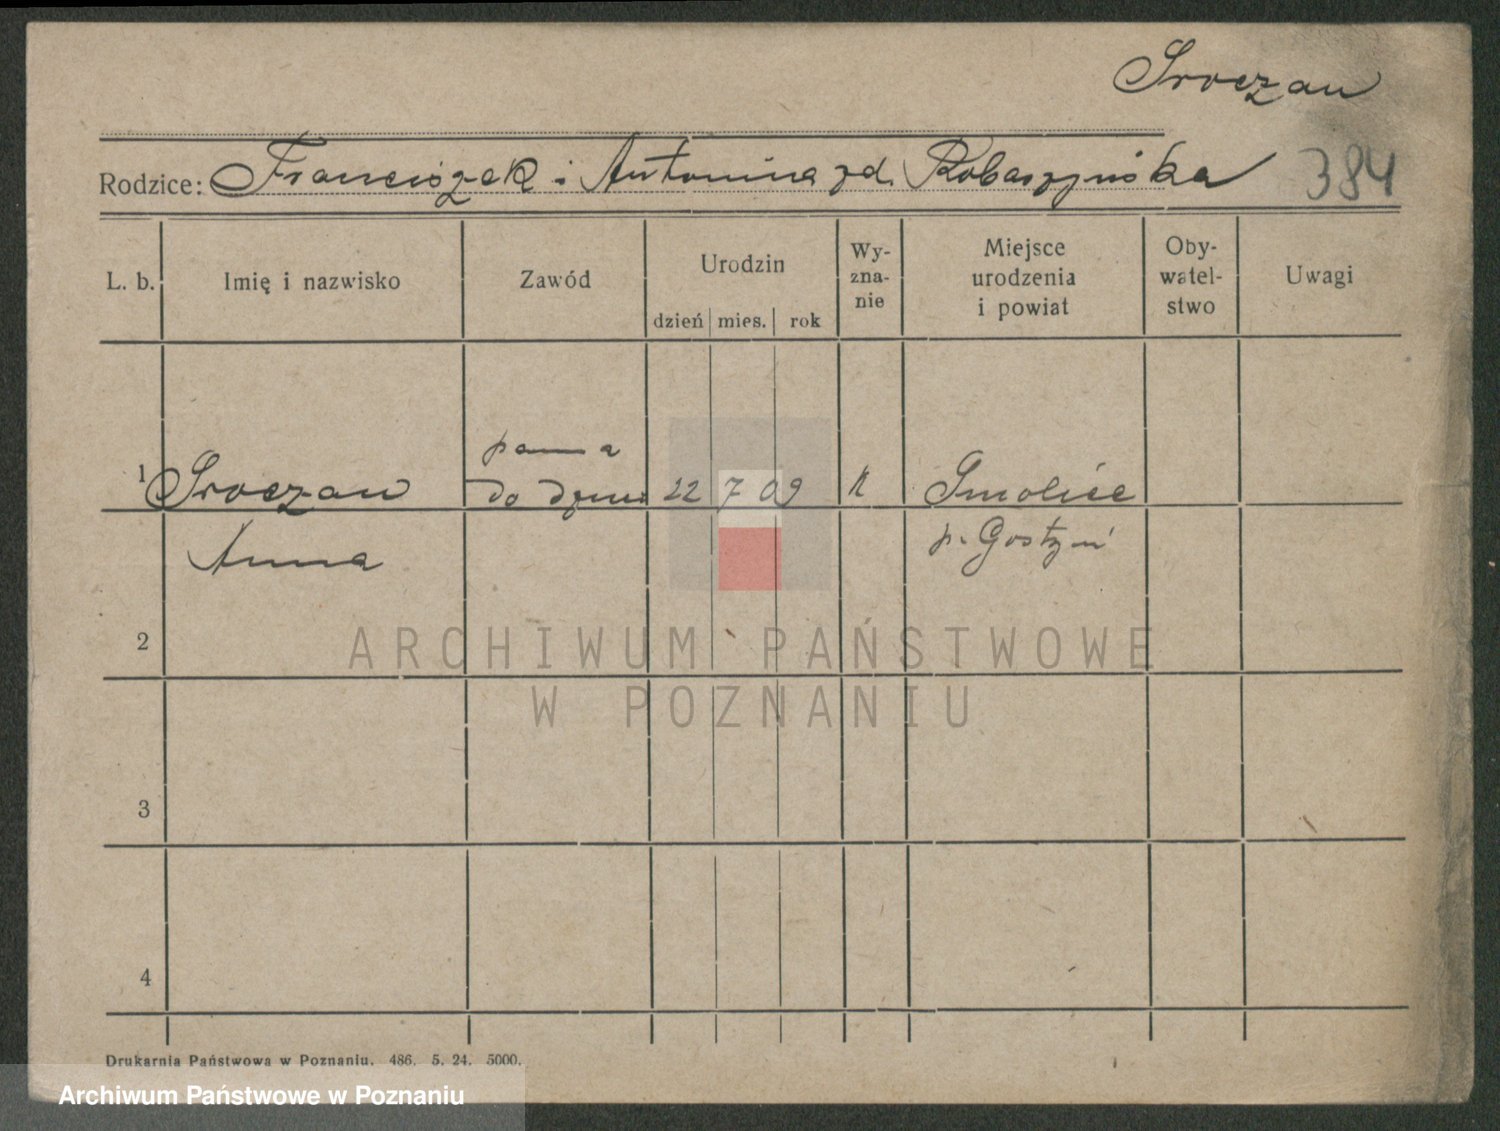 Sroczan
Rodzice: Franciszek i Antonina zd. Robaszyńska 384
L. b. Imię i nazwisko Zawód Urodzin Wy-zna-nie Miejsce urodzenia i powiat Oby-watel-stwo Uwagi
dzień mies. rok
panna
1 Sroczan do dzieci 22 7 09 K Smolice
Anna p. Gostyń
2
ARCHIWUM PAŃSTWOWE
W POZNANIU
3
4
Drukarnia Państwowa w Poznaniu. 486. 5. 24. 5000.
Archiwum Państwowe w Poznaniu